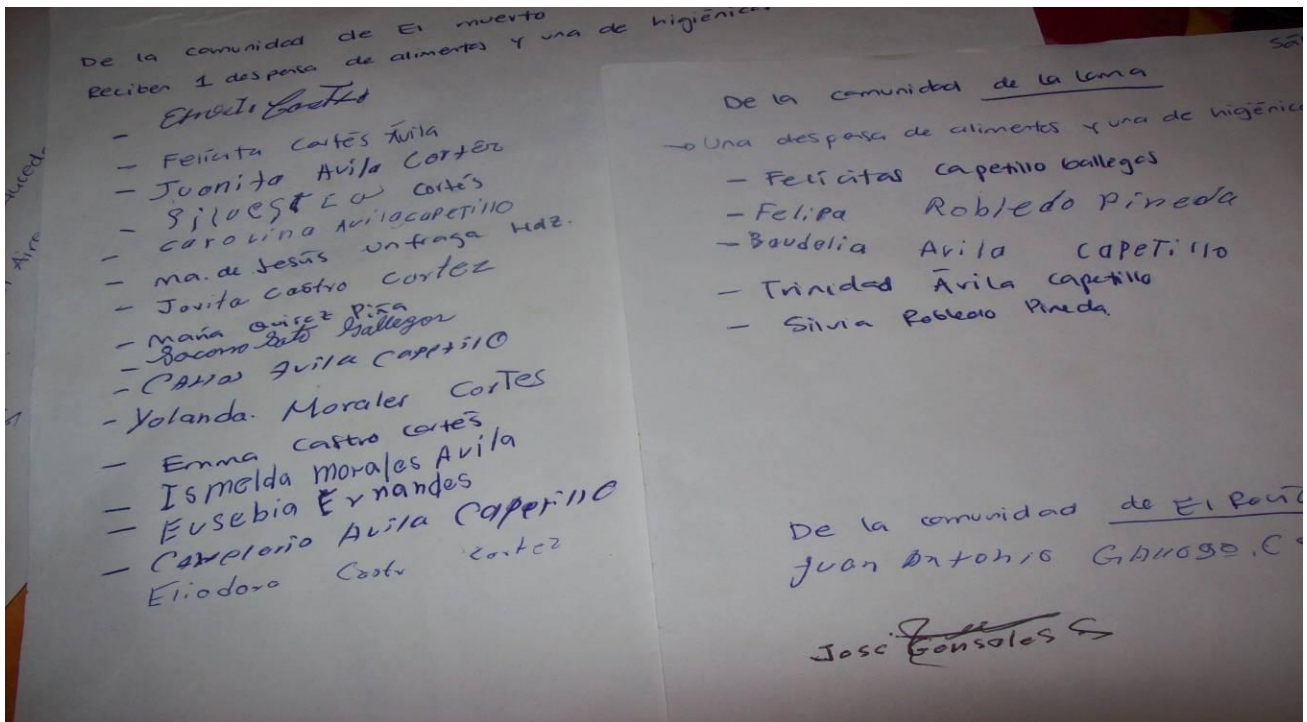 De la comunidad de El muerto
Reciben 1 despensa de alimentos y una de higiénicos
- Felicita Cortés Ávila
- Juanita Avila Corter
- Silvestra Cortés
- Carolina Avilacapetillo
- Ma. de Jesús unfraga Hdz.
- Jovita Castro Cortez
- María Quiroz Piña
- Socorro Soto Gallegos
- Avila Capetillo
- Yolanda. Morales Cortes
- Emma Castro Cortés
- Ismelda Morales Avila
- Eusebia Ernandes
- Avila Capetillo
Eliodoro Castr Cortez
De la comunidad de la Loma
→ Una despensa de alimentos y una de higiénico
- Felicitas Capetillo Gallegos
- Felipa Robledo Pineda
- Baudelia Avila Capetillo
- Trinidad Ávila Capetillo
- Silvia Robledo Pineda
De la comunidad de El
Juan Antonio
José Gonsales